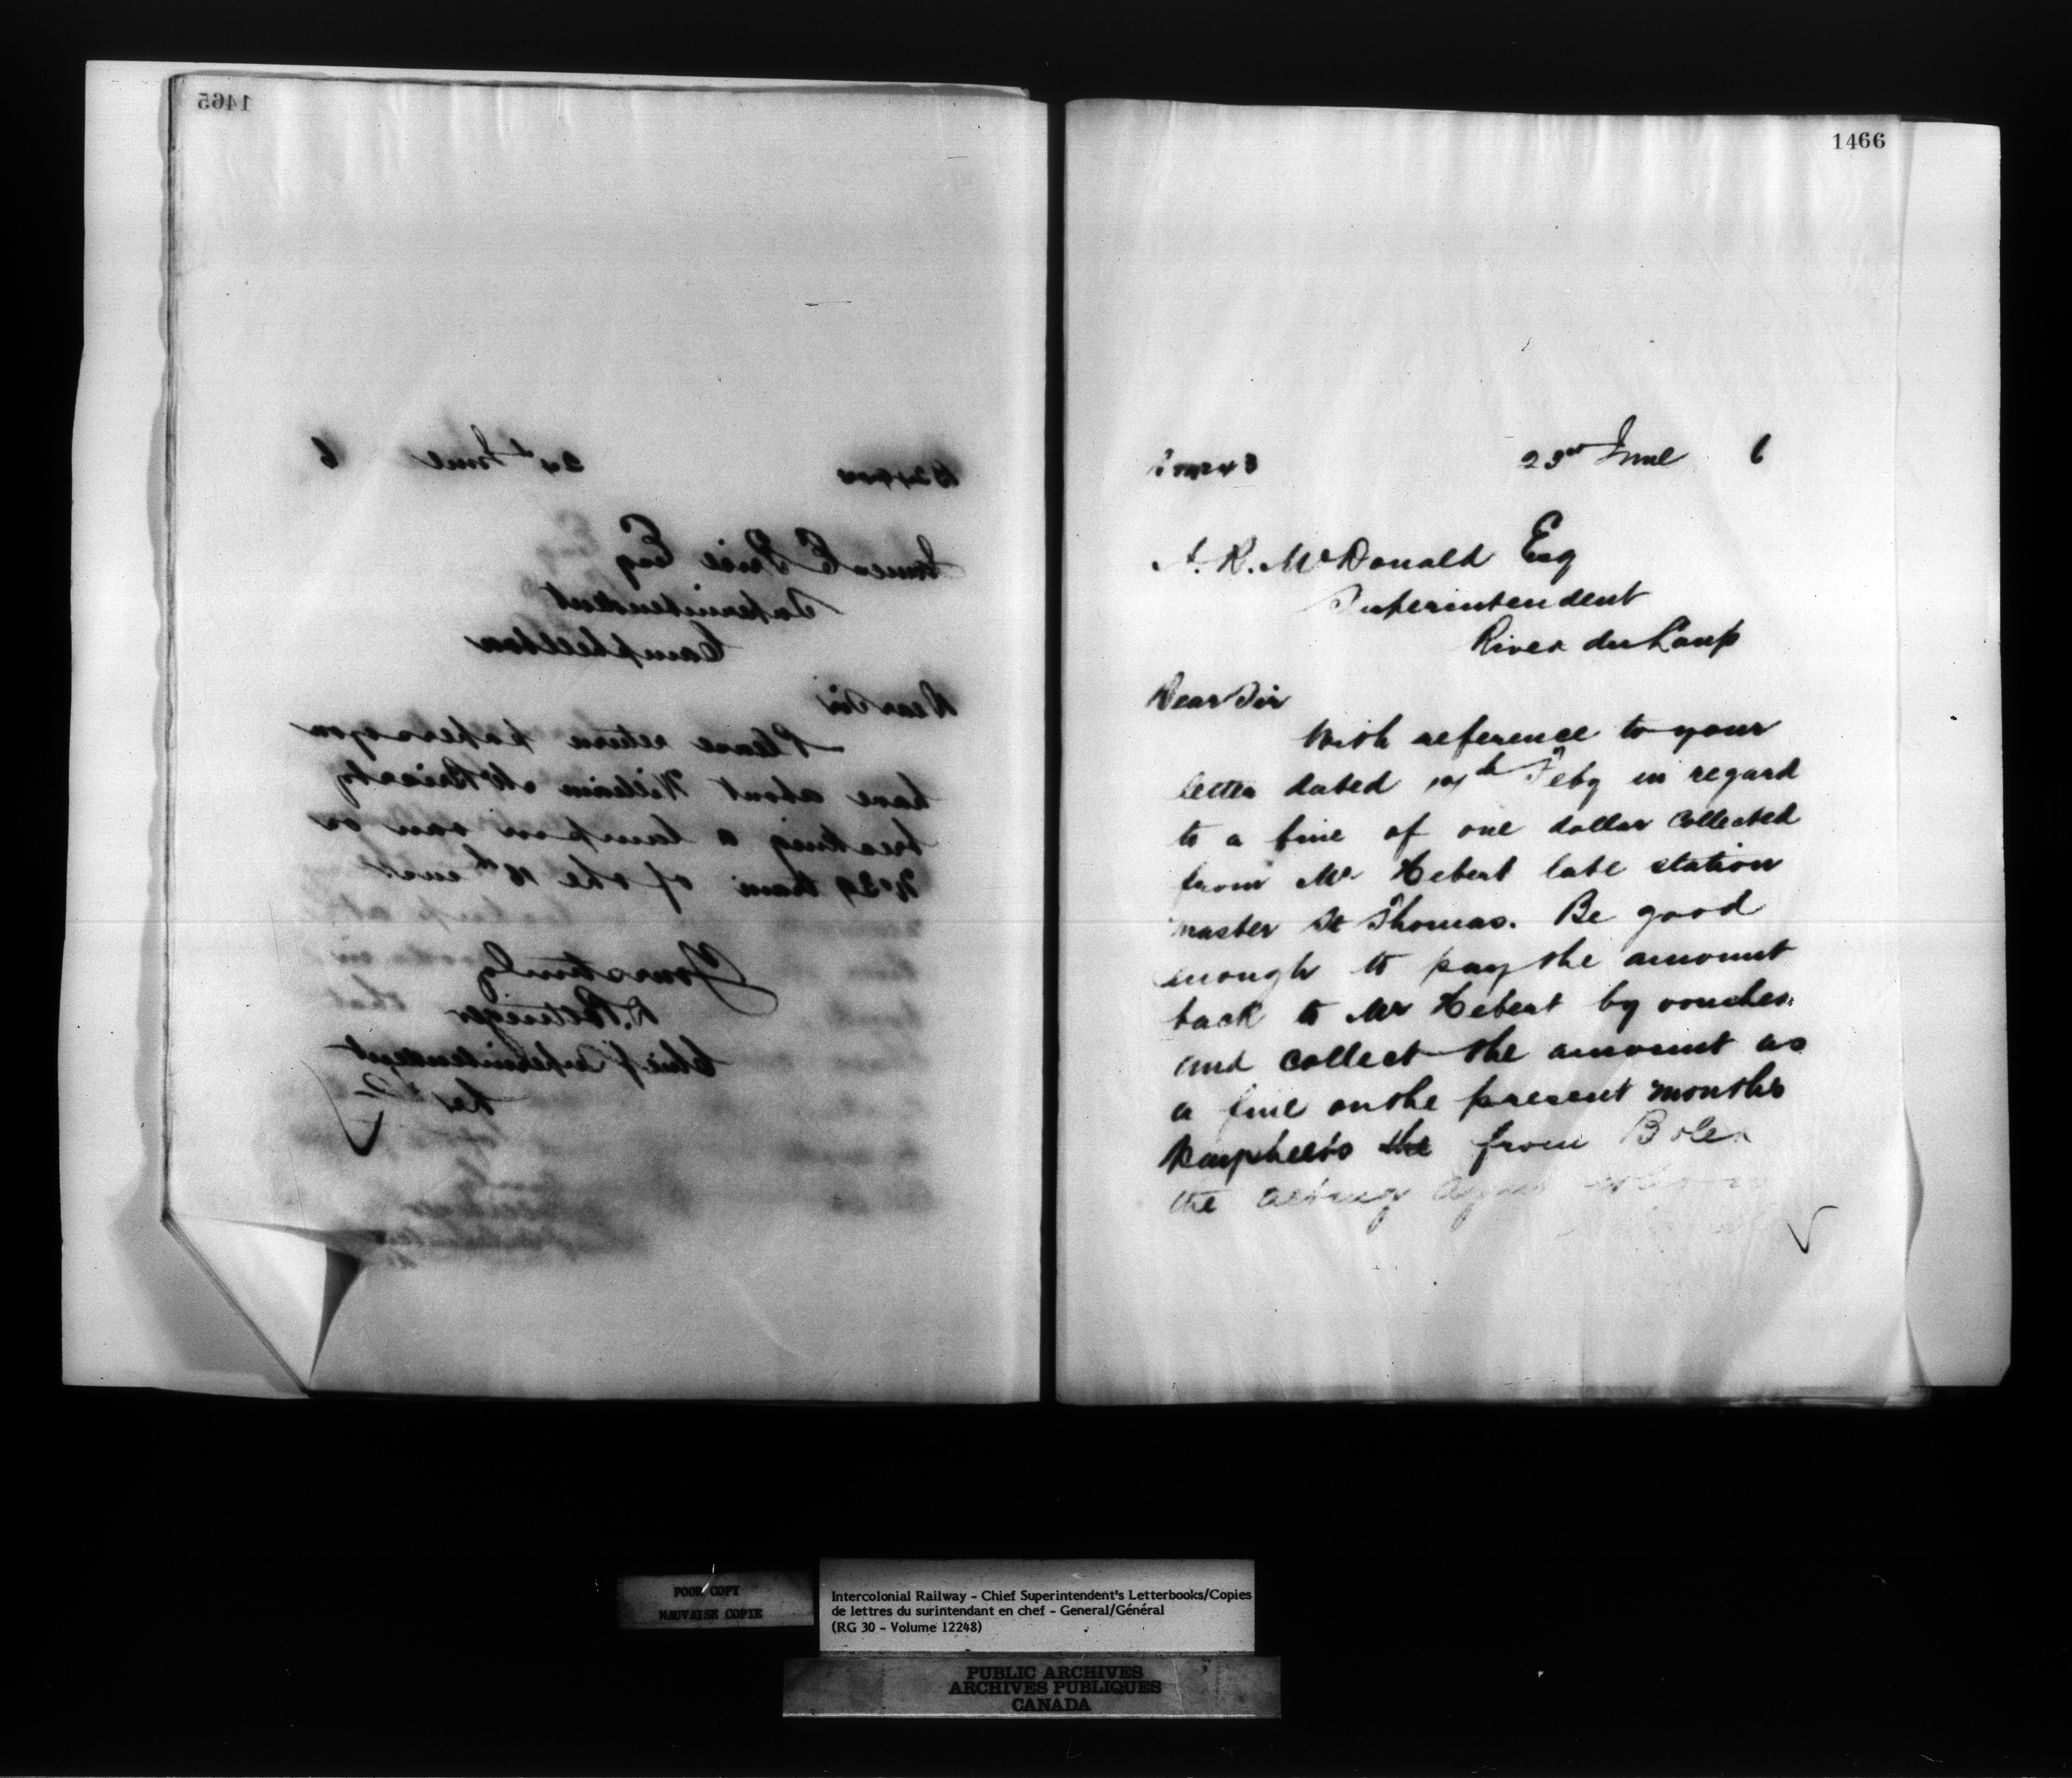 1465
24th June 6
James E Price Esq
Superintendent
Campbellton
Dear Sir
Please return papers you
have about William
breaking a lamp in van on
No 39 train of the 18th inst
Yours truly
D. Pottinger
Chief Superintendent
1466
23rd June 6
A. R. McDonald Esq
Superintendent
River du Loup
Dear Sir
With reference to your
letter dated Feby in regard
to a fine of one dollar collected
from Mr Hebert late station
master St Thomas. Be good
enough to pay the amount
back to Mr Hebert by voucher
and collect the amount as
a fine on the present months
the from
the acting
POOR COPY
MAUVAISE COPIE
Intercolonial Railway - Chief Superintendent's Letterbooks/Copies
de lettres du surintendant en chef - General/Général
(RG 30 - Volume 12248)
PUBLIC ARCHIVES
ARCHIVES PUBLIQUES
CANADA